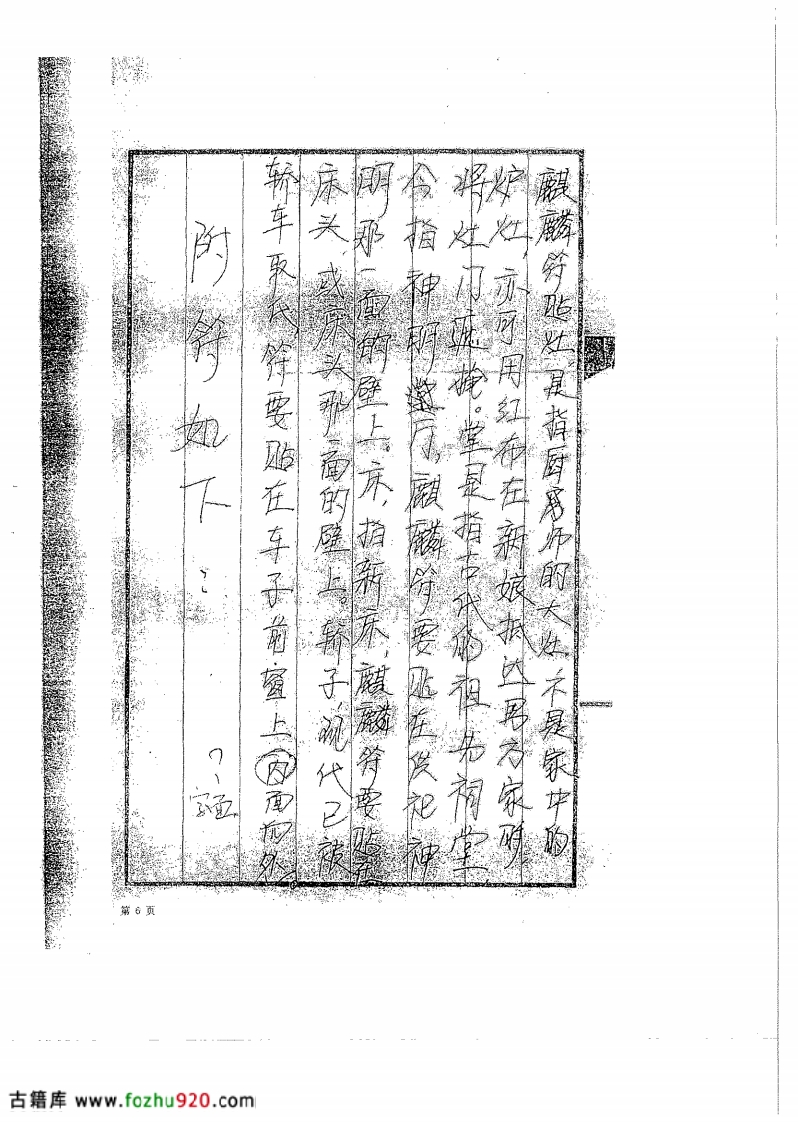 麒麟符贴灶。是指厨房师的大灶、不是家中的
炉灶，亦可用红布在新娘抵达男方家时，
将灶门遮掩。堂是指古代的祖先祠堂
今指神明堂厅，麒麟符要贴在供祀神
明那一面的壁上。床，指新床，麒麟符要贴在
床头，或床头那一面的壁上。轿子，现代已被
轿车取代，符要贴在车子前窗上内面向外
附符如下：
第 6 页
古籍库 www.fozhu920.com